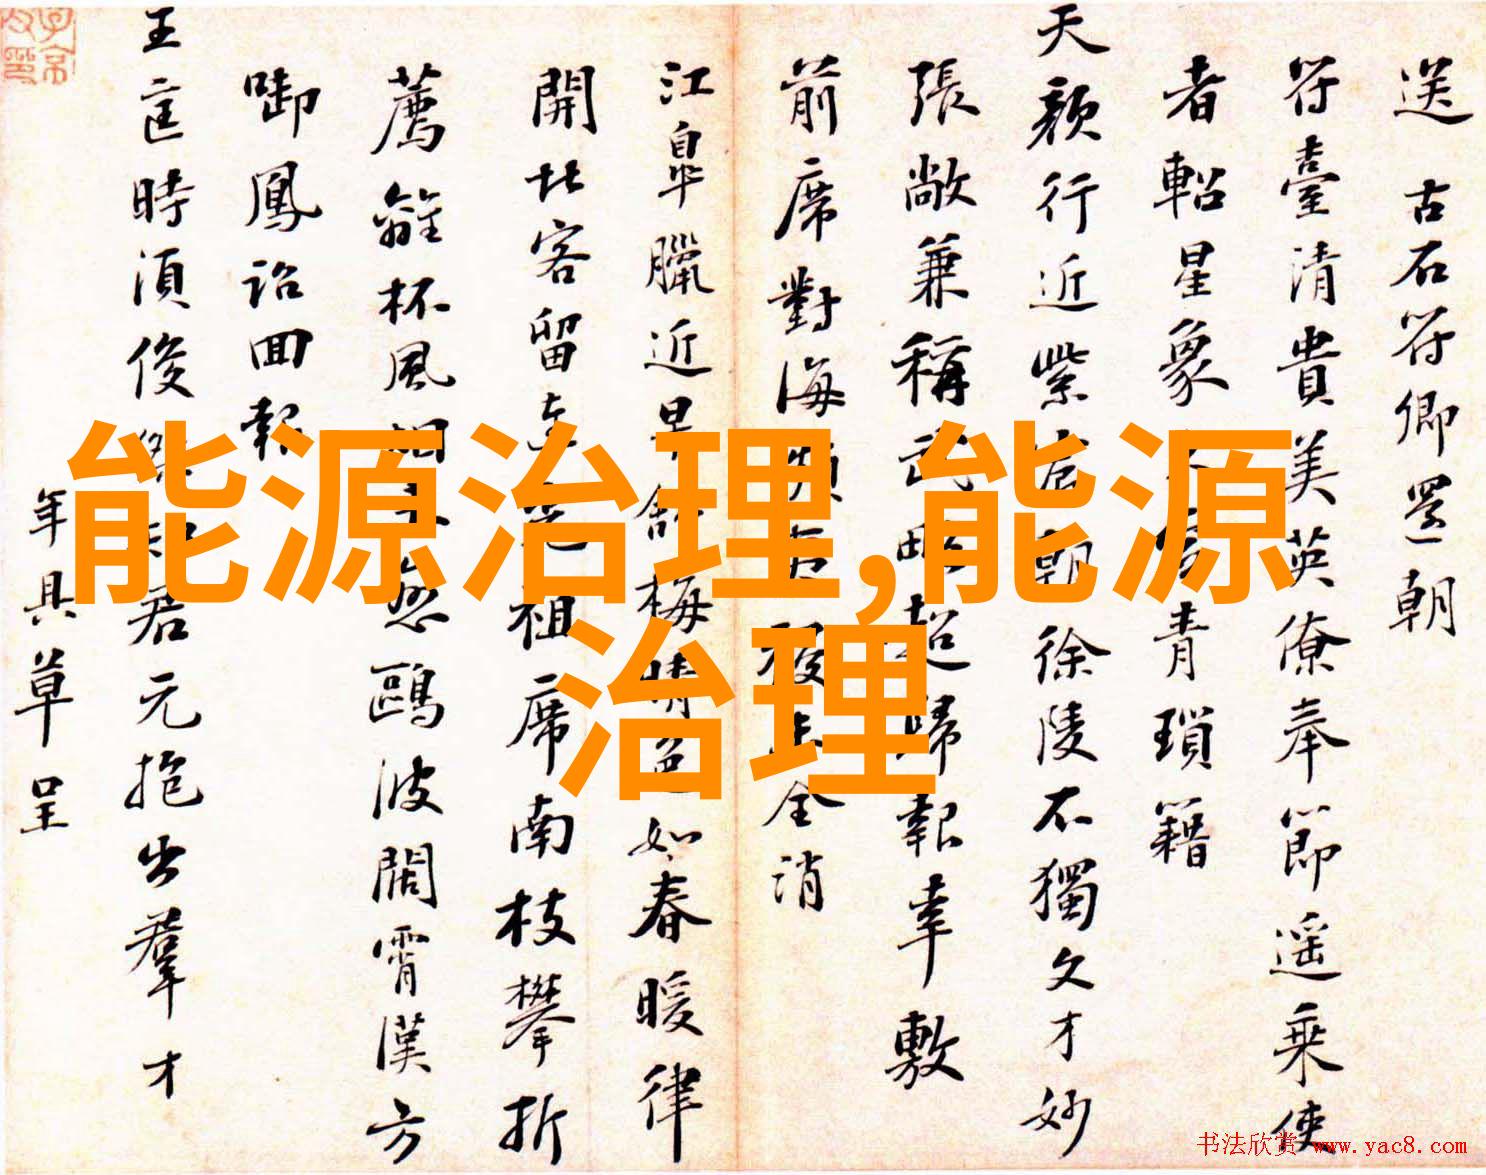 送古石符卿還朝
符臺清貴美英僚奉節遥乘使
者軺星象
青瑣籍
天顔行近紫宸朝徐陵不獨文才妙
張敞兼稱武略超歸報幸敷
前席對海
全消
江皐臘近
梅晴色如春暖律
開北客留連
祖席南枝攀折
薦
杯風
愁鷗波闊霄漢方
啣鳳詔回報
王㝎時湏俊傑
君元抱出羣才
年具草呈
能源治理,能源
治理
书法欣赏 www.yac8.com